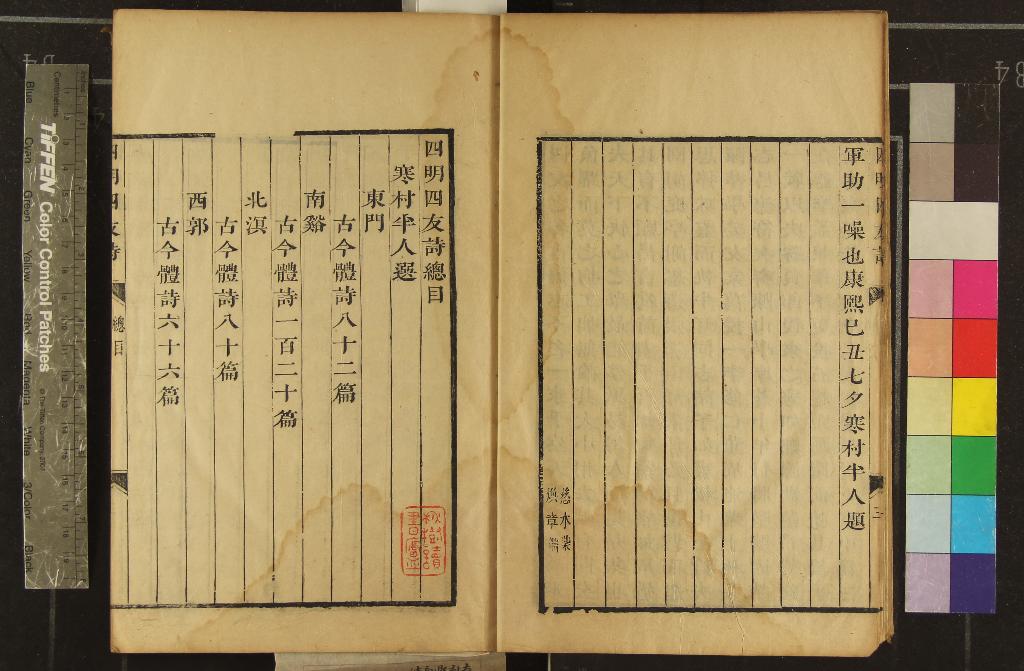 軍助一噪也康熙己丑七夕寒村半人題
三
慈水柴
四明四友詩總目
寒村半人選
東門
古今體詩八十二篇
南谿
古今體詩一百二十篇
北溟
古今體詩八十篇
西郭
古今體詩六十六篇
四明四友詩
總目
TIFFEN Color Control Patches
Centimetres
Blue
Cyan
Green
Yellow
Red
Magenta
White
3/Color
Black